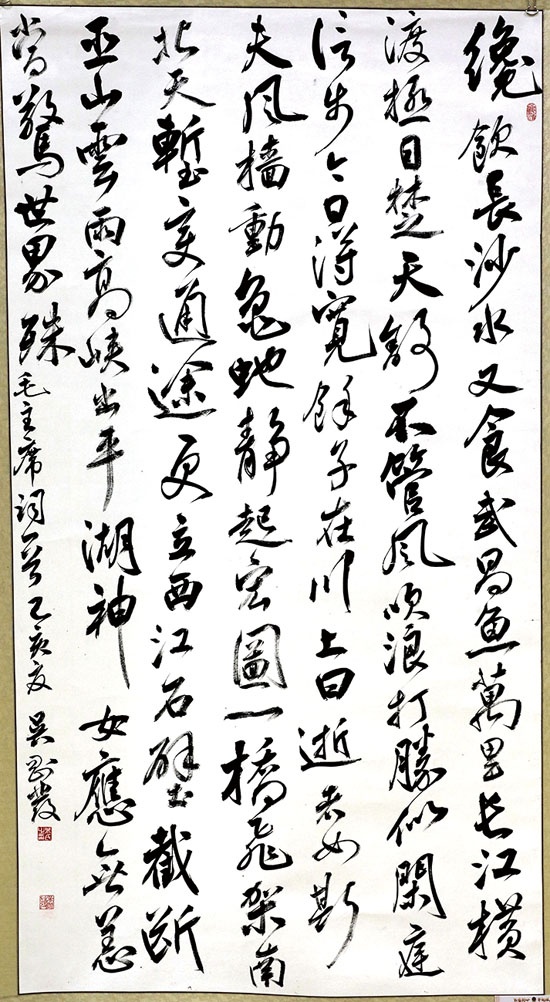 纔飲長沙水又食武昌魚萬里长江横
渡極目楚天舒不管风吹浪打勝似閑庭
信步今日得寬餘子在川上曰逝者如斯
夫风檣動龜蛇静起宏圖一橋飛架南
北天塹变通途更立西江石壁截斷
巫山雲雨高峡出平湖神女應無恙
當驚世界殊毛主席词一首乙亥夏吴發